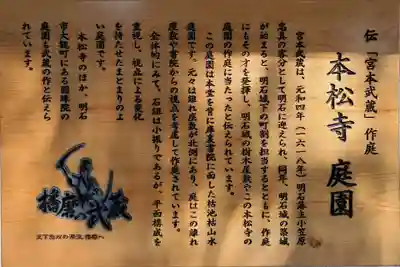 伝「宮本武蔵」作庭
本松寺 庭園
宮本武蔵は、元和四年(一六一八年)明石藩主小笠原
忠真の客分として明石に迎えられ、同年、明石城の築城
が始まると、明石城下の町割を担当するとともに、作庭
にもその才を発揮し、明石城の樹木屋敷やこの本松寺の
庭園の作庭に当たったと伝えられています。
この庭園は本堂を背に庫裏書院に面した枯池枯山水
庭園です。元々は離れ座敷が北側にあり、庭はこの離れ
座敷や書院からの視点を考慮して作庭されています。
全体的にみて、石組は小振りであるが、平面構成を
重視し、視点による変化
を持たせたまとまりのよ
い庭園です。
本松寺のほか、明石
市大観町にある圓珠院の
庭園も武蔵の作と伝えら
れています。
播磨の武蔵